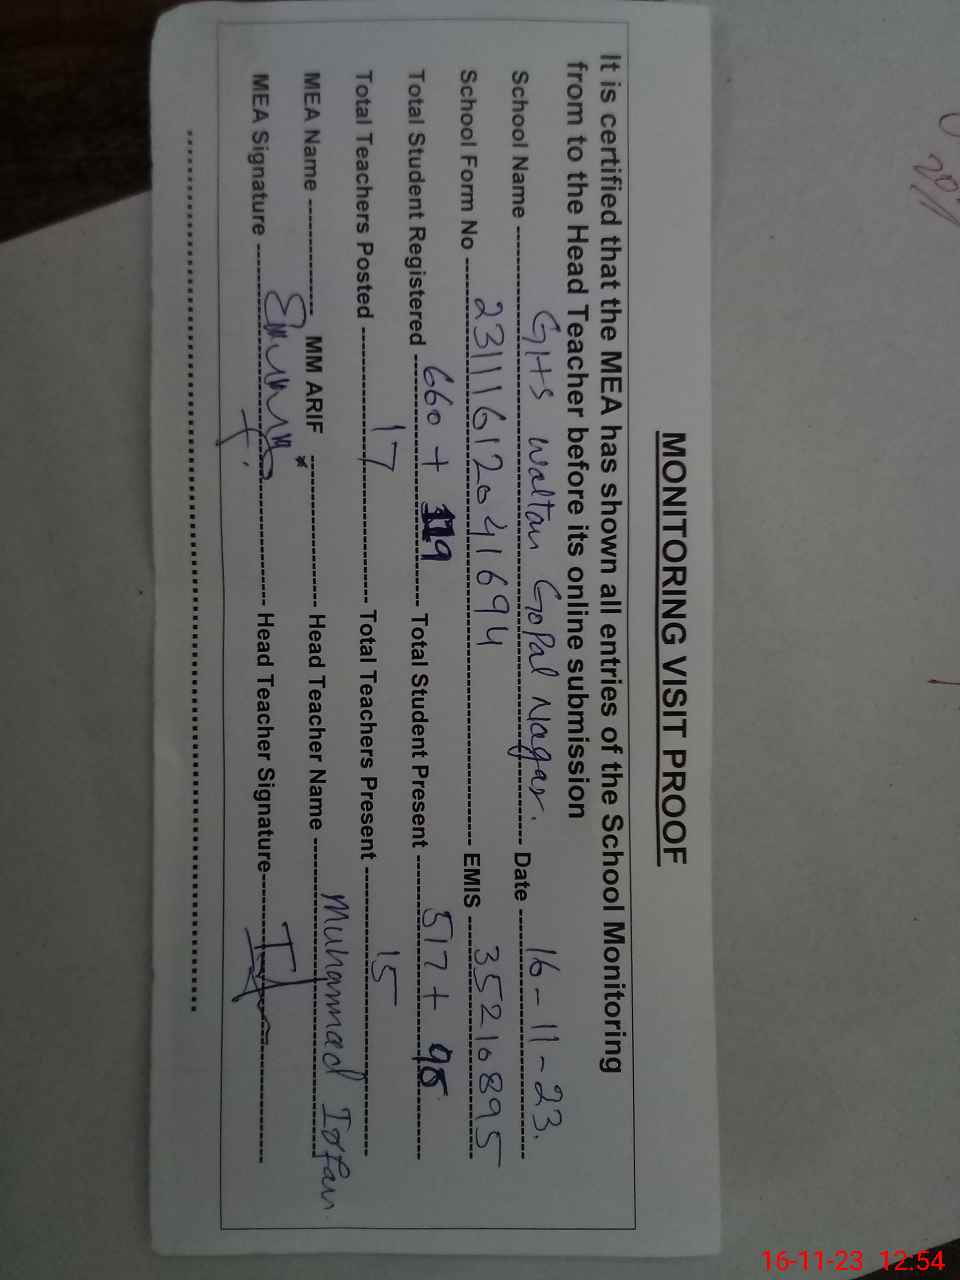 MONITORING VISIT PROOF
It is certified that the MEA has shown all entries of the School Monitoring
from to the Head Teacher before its online submission
School Name GHS Walton Gopal Nagar. Date 16-11-23.
School Form No 2311161204 1694 EMIS 35210895
Total Student Registered 660 + 119 Total Student Present 517 + 98
Total Teachers Posted 17 Total Teachers Present 15
MEA Name MM ARIF Head Teacher Name Muhammad Irfan
MEA Signature Head Teacher Signature
16-11-23 12:54